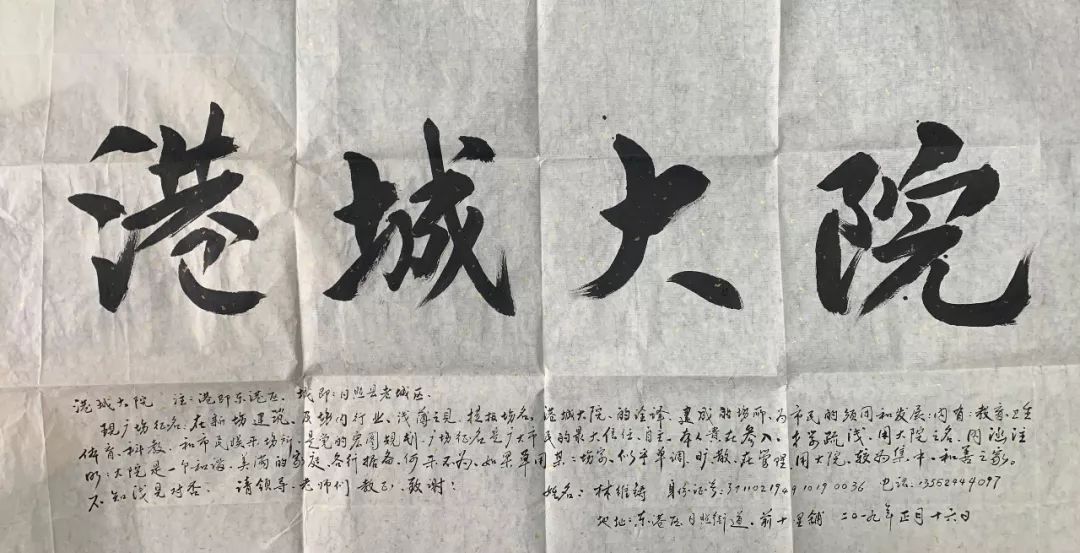 港城大院
港城大院 注:港即东港区、城即:日照县老城区、
现广场征名:在新场建筑、及场内行业、浅薄之见、提拟场名。港城大院、的诠译、建成的场所、为市民的须同和发展:内有:教育、卫生
体育、科教、和市民娱乐场所、是党的宏图规划、广场征名是广大市民的最大信任、自主、有人贵在参入、才学疏浅、用大院之名、内涵注
明:大院是一个和谐、美满的家庭、各行据备、何乐不为、如果单用某:场、家、似乎单调、旷散、在管理用大院、较为集中、和善之家。
不知浅见对否 请领导、老师们教正、致谢! 姓名:林维 身份证号:371102194910190036 电话:13552444097
地址:东港区日照街道、前十里铺 二〇一九年正月十六日